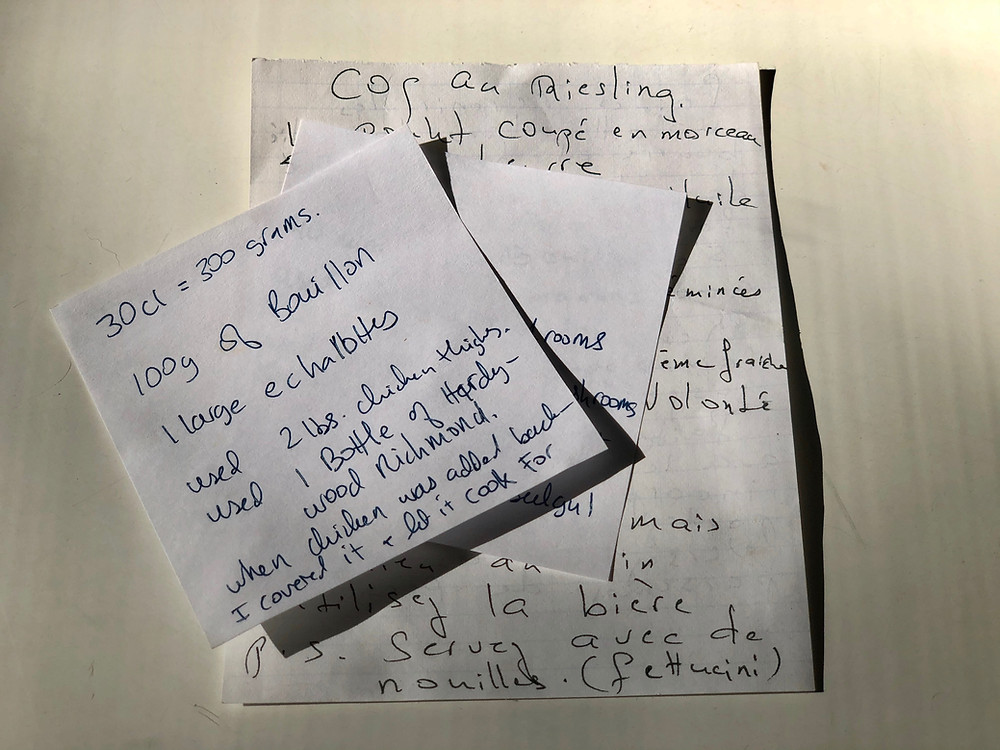 COq au Riesling.
coupé en morceau
émincés
ème fraiche
Volonté
mais
tilisez la bière
P.S. Servez avec de
nouilles. (fettucini)
rooms
hrooms
30cl = 300 grams.
100g of Bouillon
1 large echalottes
used 2 lbs. chicken thighs.
used 1 Bottle of Hardy-
wood Richmond.
when chicken was added back -
I covered it & let it cook for